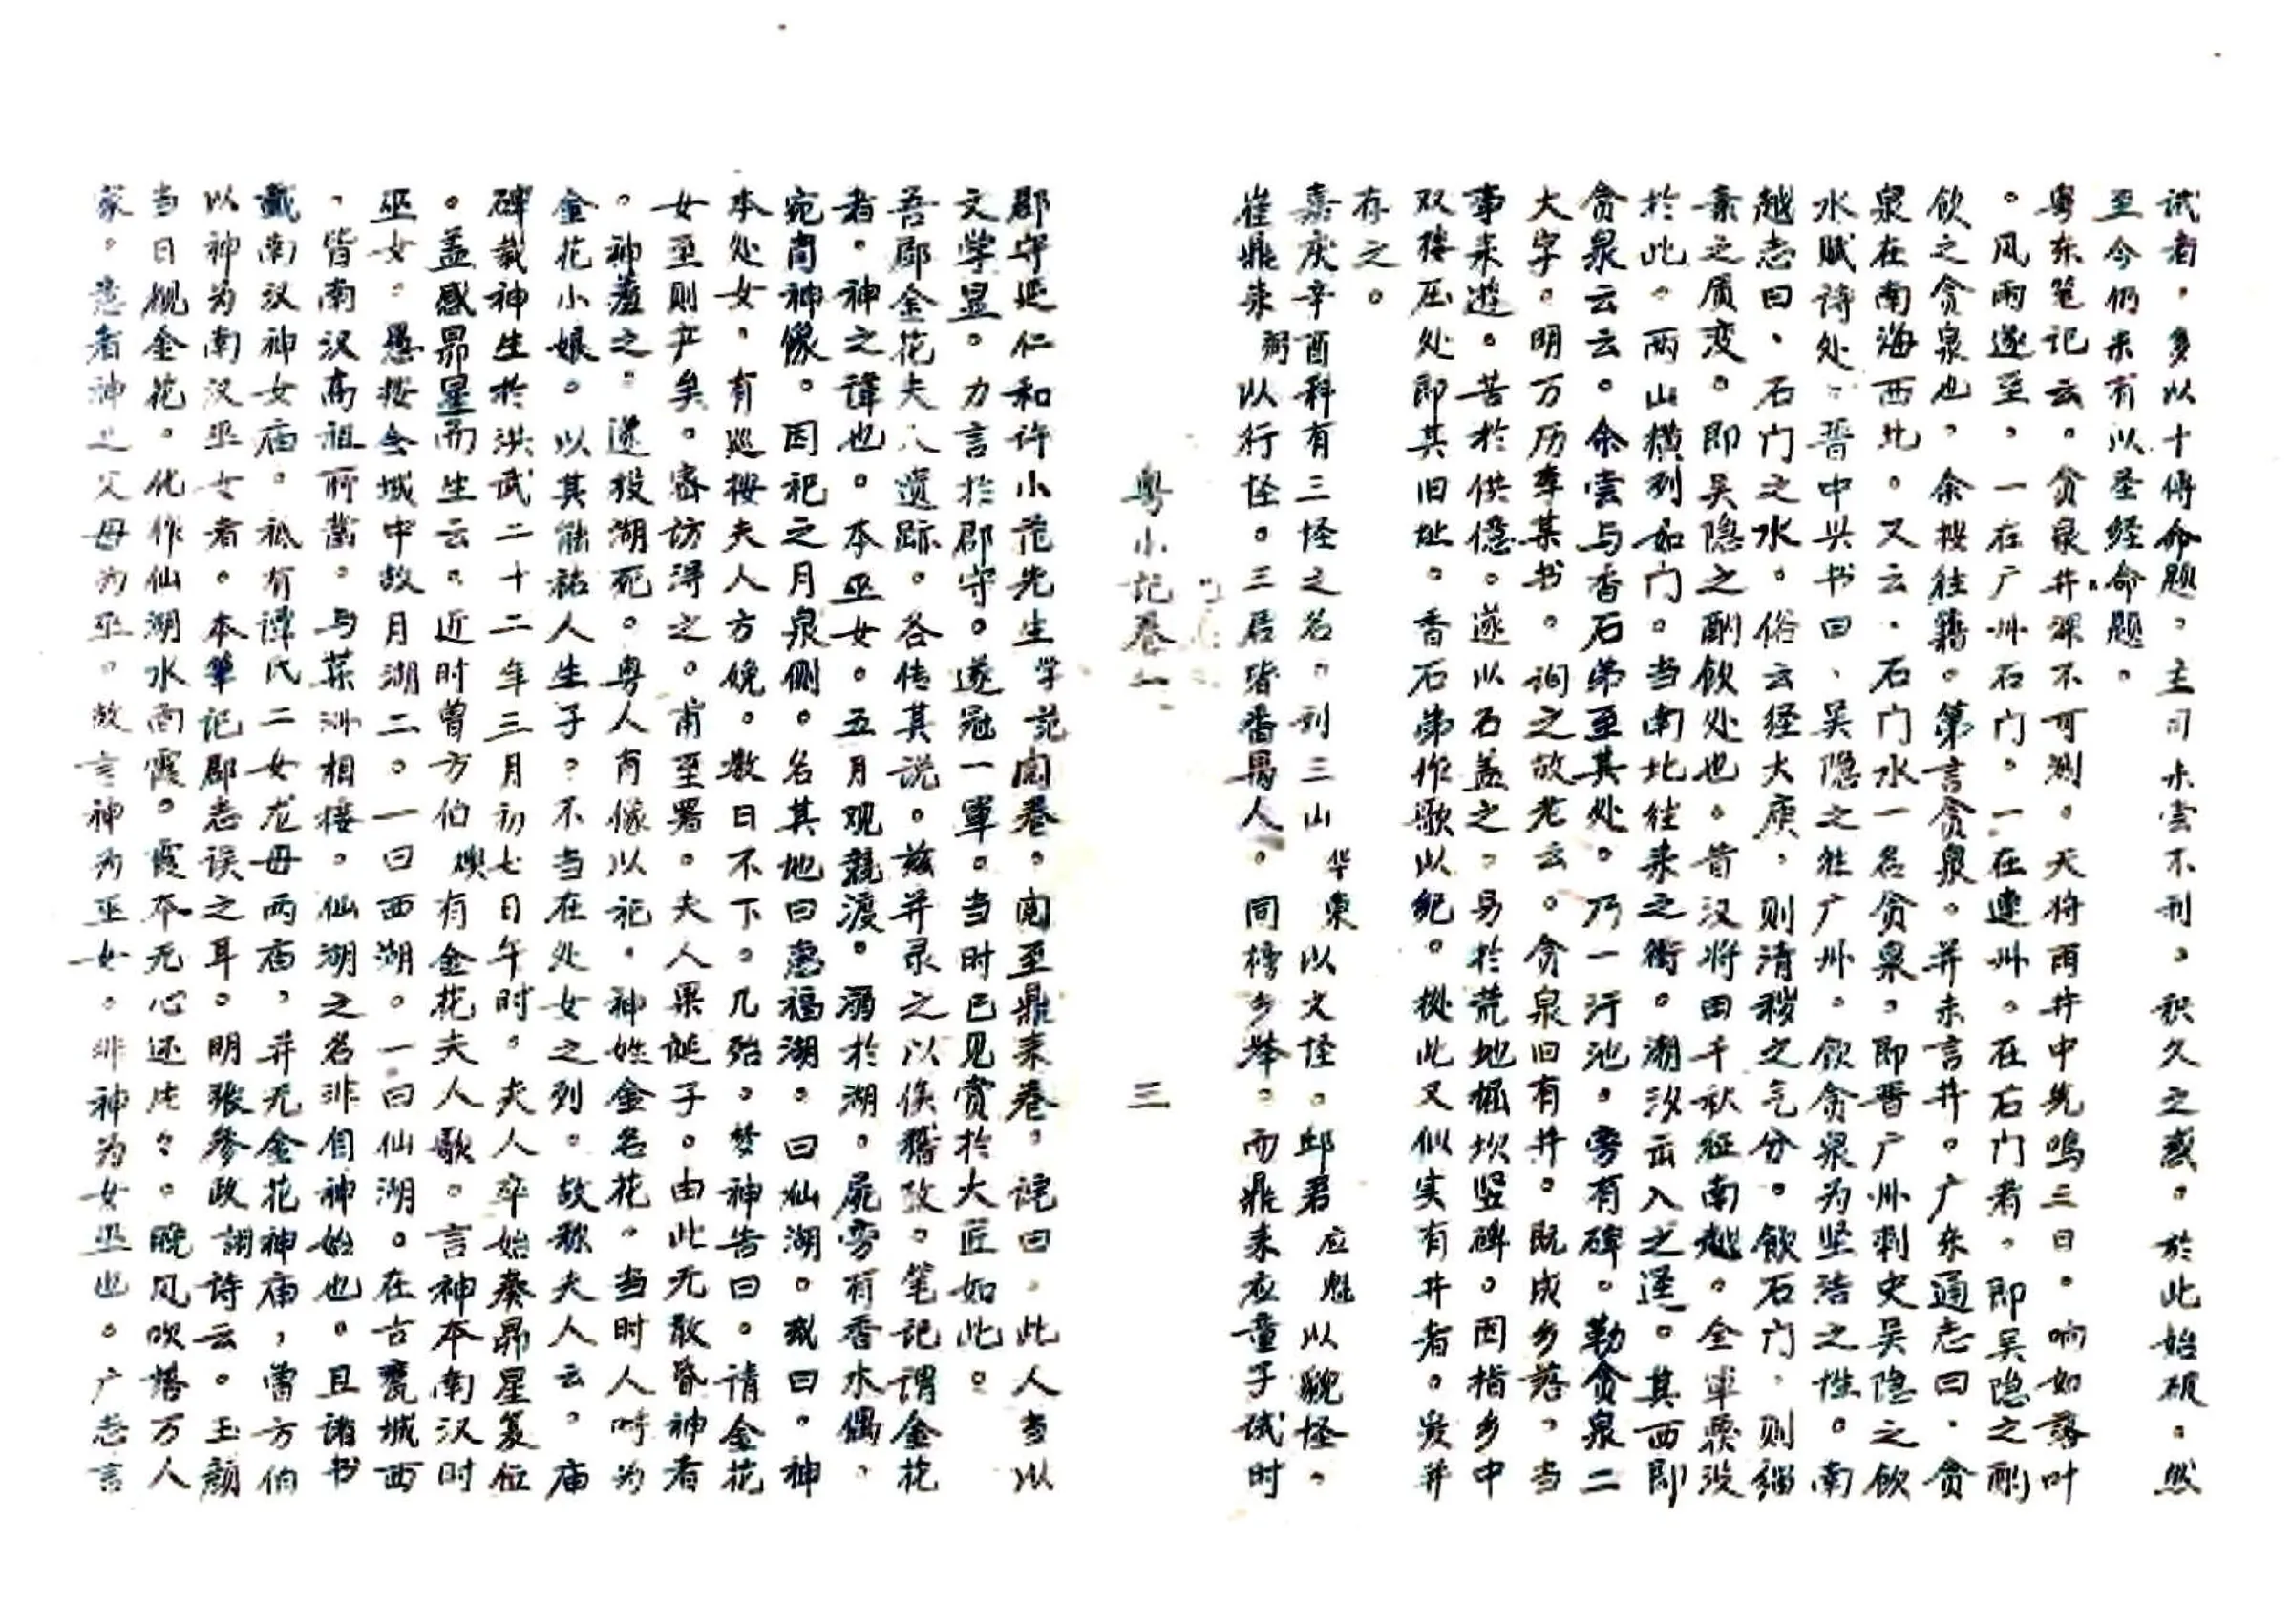 试者。多以十传命题。主司未尝不刊。积久之惑。於此始破。然
至今仍未有以圣经命题。
粤东笔记云。贪泉井深不可测。天将雨井中先鸣三日。响如落叶
。风雨遂至。一在广州石门。一在连州。在石门者。即吴隐之酌
饮之贪泉也。余按往籍。第言贪泉。并未言井。广东通志曰。贪
泉在南海西北。又云。石门水一名贪泉。即晋广州刺史吴隐之饮
水赋诗处。晋中兴书曰、吴隐之往广州。饮贪泉为坚浩之性。南
越志曰、石门之水。俗云经大庾。则清秽之气分。饮石门。则缁
素之质变。即吴隐之酌饮处也。昔汉将田千秋征南越。全军覆没
於此。两山横列如门。当南北往来之衝。潮汐出入之迳。其西即
贪泉云云。余尝与香石弟至其处。乃一汙池。旁有碑。勒贪泉二
大字。明万历李某书。询之故老云。贪泉旧有井。既成乡落。当
事来遊。苦於供億。遂以石盖之。易於荒地掘坎竖碑。因指乡中
双楼压处即其旧址。香石弟作歌以纪。拠此又似实有井者。爰并
存之。
嘉庆辛酉科有三怪之名。刘三山华東以文怪。邱君应魁以貌怪。
崔鼎来弼以行怪。三居皆番禺人。同榜乡举。而鼎来应童子试时
粤小记卷一 三
郡守延仁和许小范先生学范阅卷。阅至鼎来卷。诧曰。此人当以
文学显。力言於郡守。遂冠一軍。当时已见赏於大匠如此。
吾郡金花夫人遗踪。各传其说。兹并录之以俟稽攷。笔记谓金花
者。神之讳也。本巫女。五月观競渡。溺於湖。屍旁有香水偶。
宛肖神像。因祀之月泉侧。名其地曰惠福湖。曰仙湖。或曰。神
本处女。有巡按夫人方娩。数日不下。几殆。梦神告曰。请金花
女至则产矣。密访得之。甫至署。夫人果诞子。由此无敢昏神者
。神羞之。遂投湖死。粤人肖像以祀。神姓金名花。当时人呼为
金花小娘。以其能祐人生子。不当在处女之列。故称夫人云。庙
碑载神生於洪武二十二年三月初七日午时。夫人卒始奏昴星复位
。盖感昴星而生云。近时曾方伯燠有金花夫人歌。言神本南汉时
巫女。愚按会城中故月湖二。一曰西湖。一曰仙湖。在古甕城西
。皆南汉高祖所凿。与菜洲相接。仙湖之名非自神始也。且诸书
戴南汉神女庙。祗有谭氏二女龙母两庙，并无金花神庙，曾方伯
以神为南汉巫女者。本筆记郡志误之耳。明张參政詡诗云。玉颜
当日睹金花。化作仙湖水面霞。霞本无心还片々。晚风吹落万人
家。志者神之父母为巫。故言神为巫女。非神为女巫也。广志言